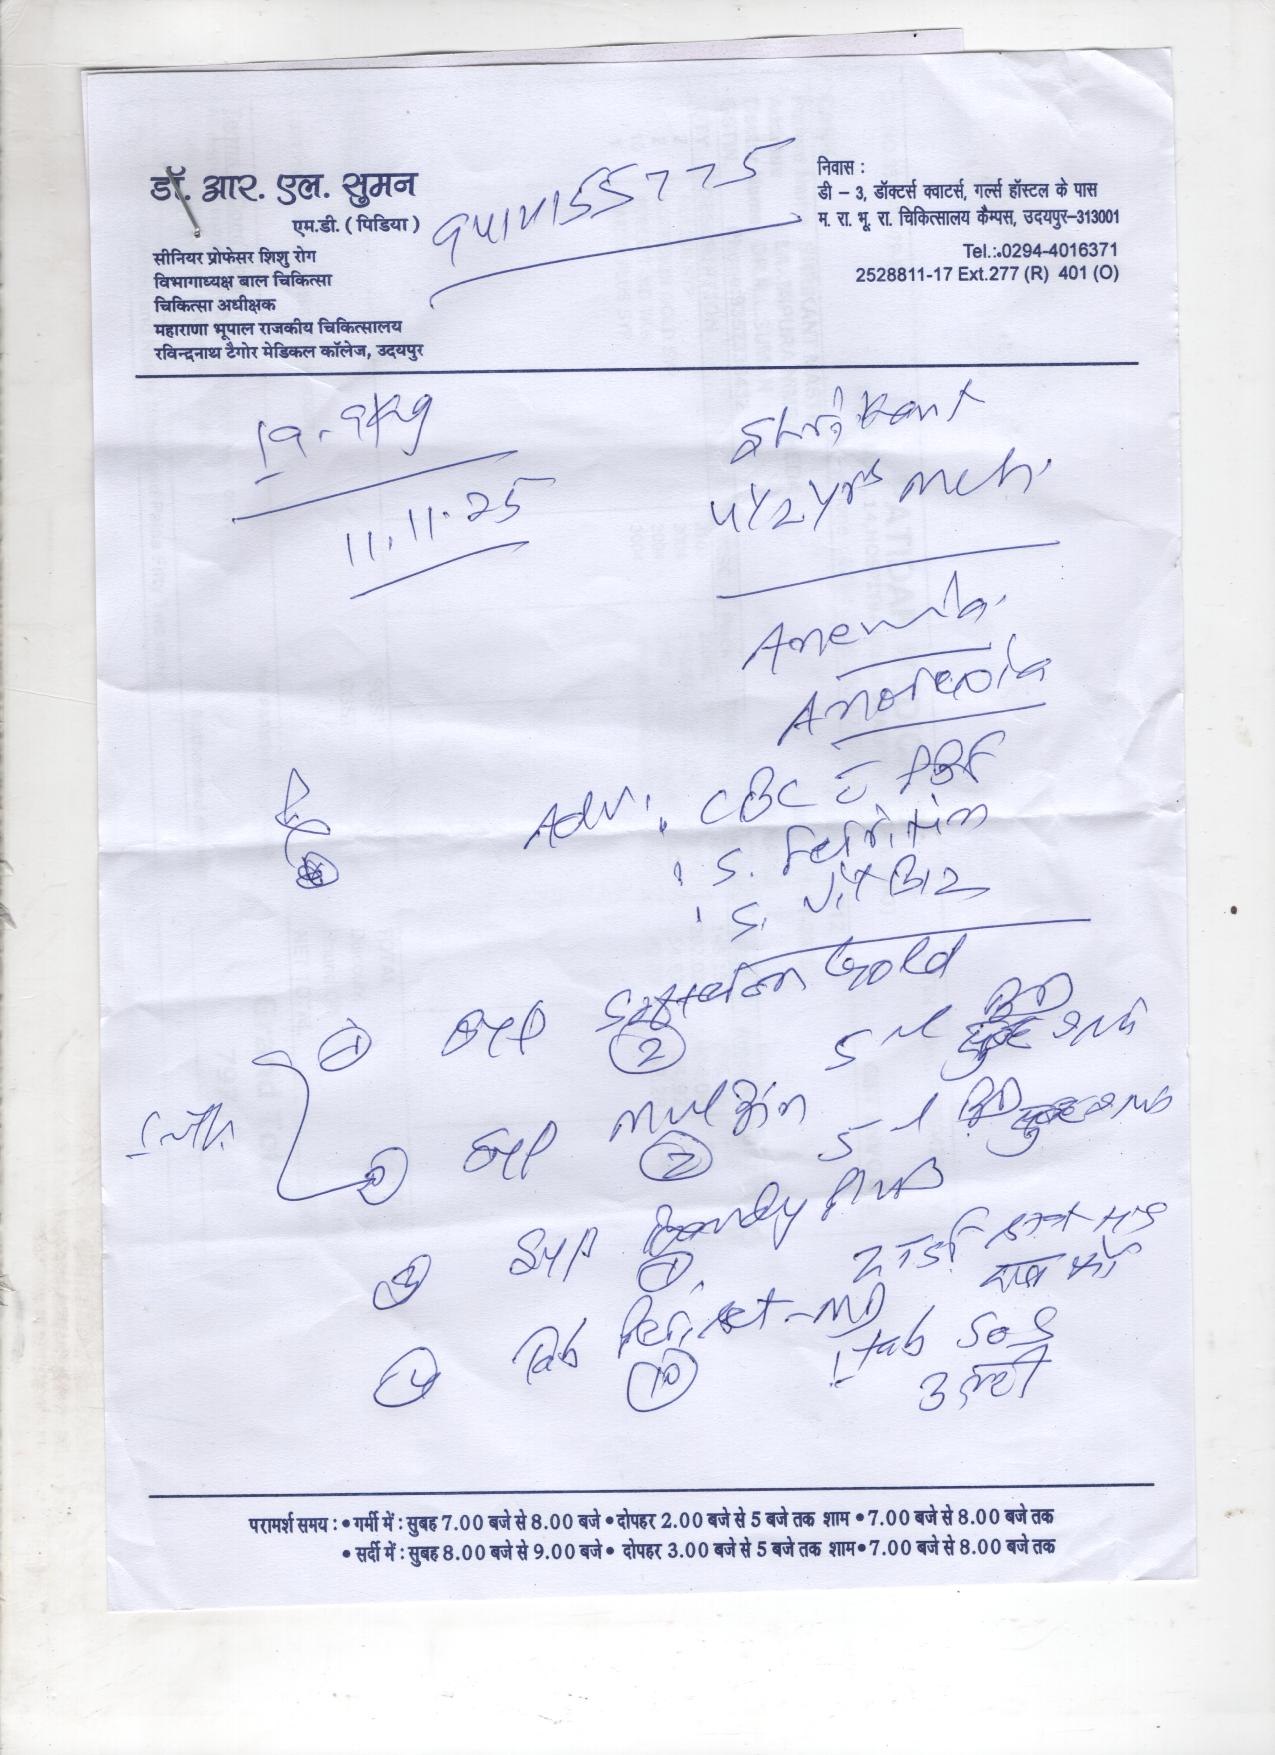 डॉ. आर. एल. सुमन
एम.डी. ( पिडिया )
सीनियर प्रोफेसर शिशु रोग
विभागाध्यक्ष बाल चिकित्सा
चिकित्सा अधीक्षक
महाराणा भूपाल राजकीय चिकित्सालय
रविन्द्रनाथ टैगोर मेडिकल कॉलेज, उदयपुर
निवास :
डी – 3, डॉक्टर्स क्वाटर्स, गर्ल्स हॉस्टल के पास
म. रा. भू. रा. चिकित्सालय कैम्पस, उदयपुर–313001
Tel.:.0294-4016371
2528811-17 Ext.277 (R) 401 (O)
kg
11.11.25
Shrikant
4 1/2 yrs mch.
Anemia
Anorexia
Adv: CBC c PBF
: S. Ferritin
: S. Vit B12
① Syp Gold
② 5 ml BD
सुबह शाम
② Syp
② 5 ml BD सुबह शाम
③ Syp Plus
①
रात को
④ Tab -MD 1 tab SOS
⑩ उल्टी
परामर्श समय : • गर्मी में : सुबह 7.00 बजे से 8.00 बजे • दोपहर 2.00 बजे से 5 बजे तक शाम • 7.00 बजे से 8.00 बजे तक
• सर्दी में : सुबह 8.00 बजे से 9.00 बजे • दोपहर 3.00 बजे से 5 बजे तक शाम • 7.00 बजे से 8.00 बजे तक